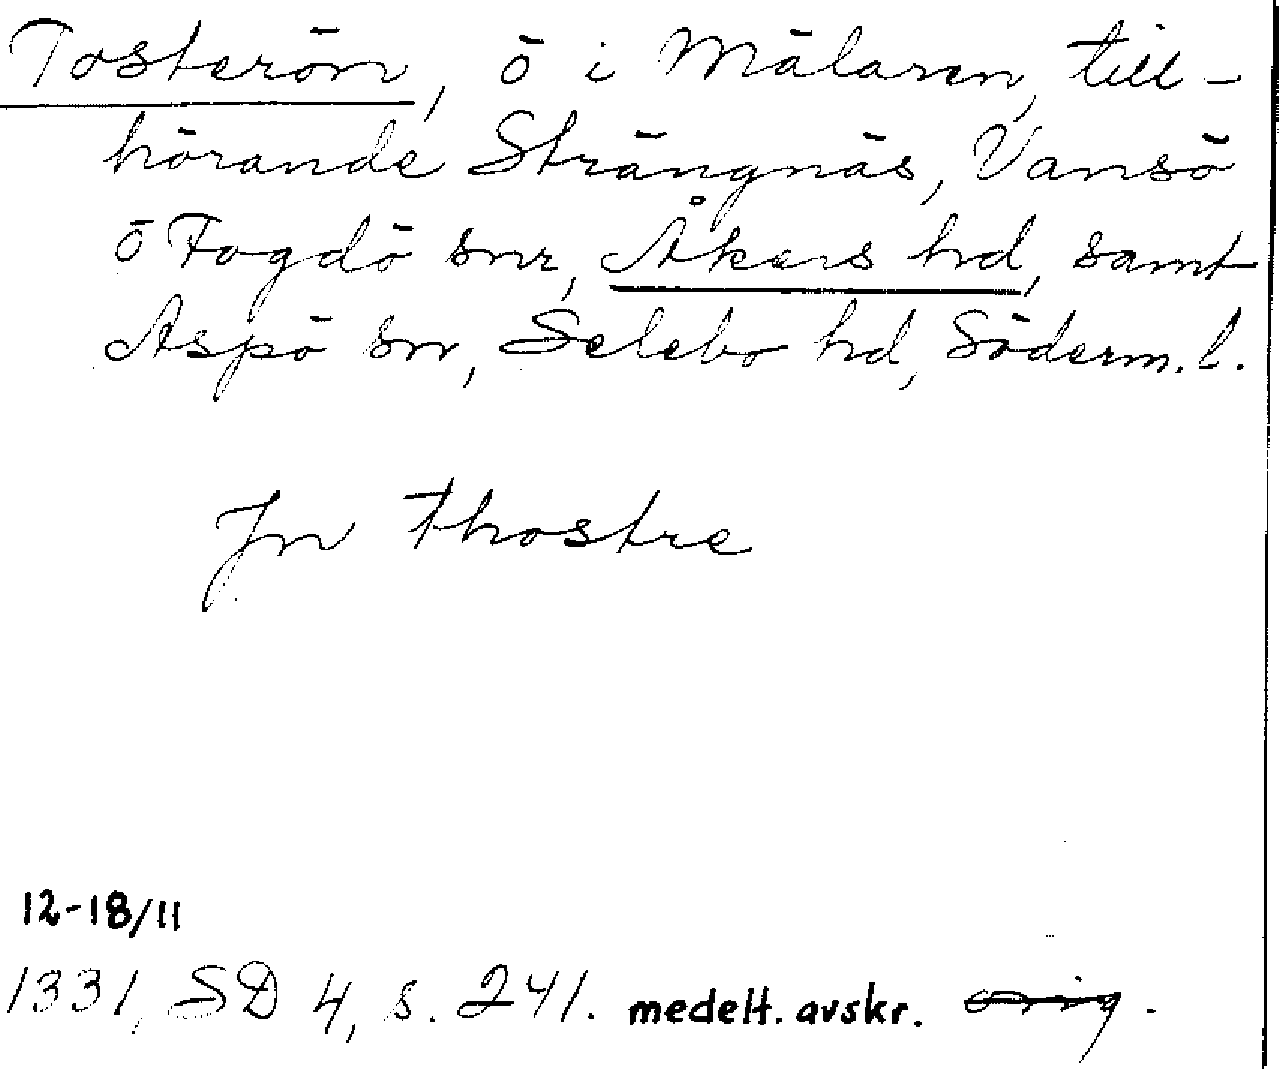 Tosterön, ö i Mälaren, till-
hörande Strängnäs, Vansö
o Fogdö snr, Åkers hd, samt
Aspö sn, Selebo hd, Söderm. l.
Jn thostre
12-18/11
1331, SD 4, s. 241. medelt. avskr. orig.